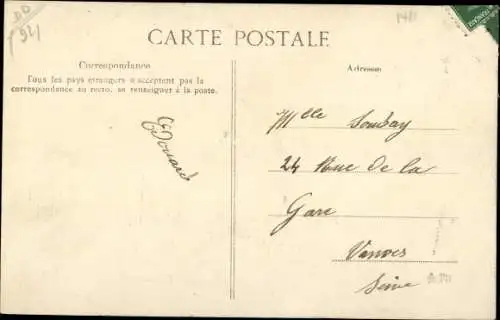 CARTE POSTALE
Correspondance
Tous les pays étrangers n'acceptent pas la
correspondance au recto, se renseigner à la poste.
Edouard
Adresse
Mlle Soubay
24 Rue de la
Gare
Vanves
Seine